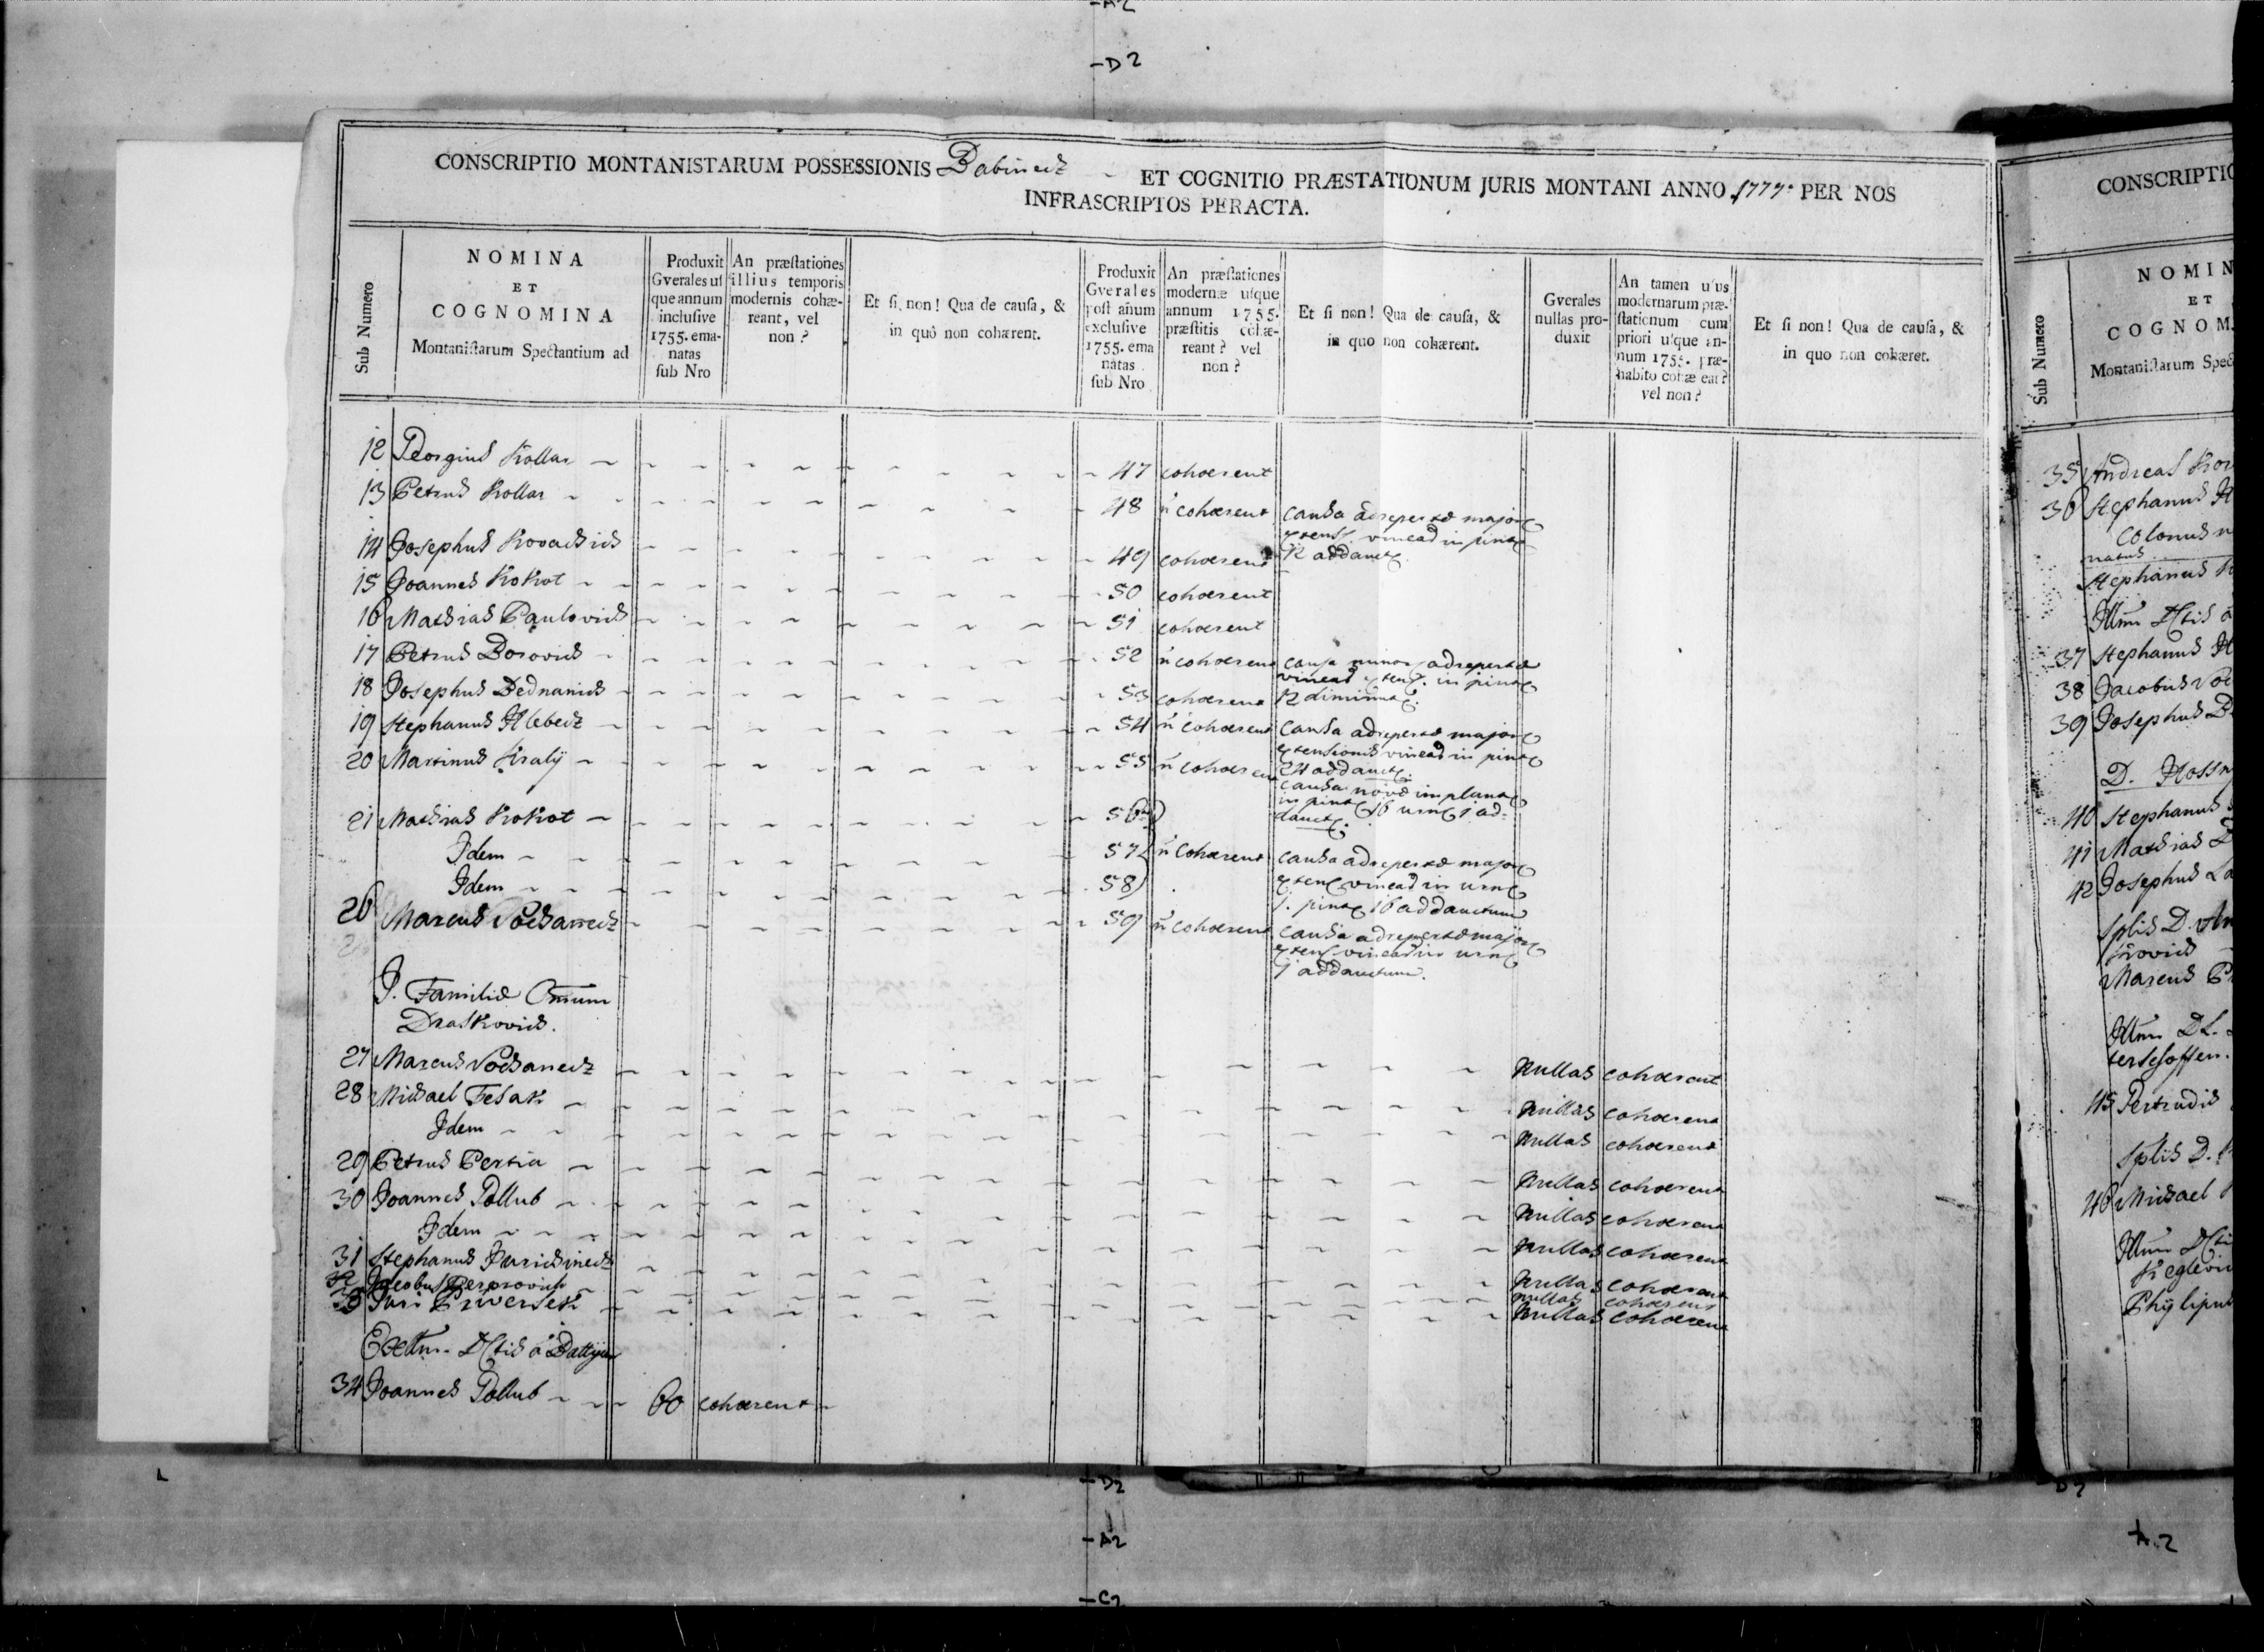 -A2
-D2
CONSCRIPTIO MONTANISTARUM POSSESSIONIS Babinecz ET COGNITIO PRÆSTATIONUM JURIS MONTANI ANNO 1777. PER NOS
INFRASCRIPTOS PERACTA.
Sub Numero
NOMINA
ET
COGNOMINA
Montanistarum Spectantium ad
Produxit
Gverales us
que annum
inclusive
1755. ema-
natas
sub Nro
An præstationes
illius temporis
modernis cohæ-
reant, vel
non?
Et si non! Qua de causa, &
in quô non cohærent.
Produxit
Gverales
post añum
exclusive
1755. ema
natas
sub Nro
An præstationes
modernæ usque
annum 1755.
præstitis cohæ-
reant? vel
non?
Et si non! Qua de causa, &
in quo non cohærent.
Gverales
nullas pro-
duxit
An tamen usus
modernarum præ-
stationum cum
priori usque an-
num 1755. præ-
habito cohæreat?
vel non?
Et si non! Qua de causa, &
in quo non cohæret.
12 Georgius Kollar 47 cohœrent
13 Petrus Kollar 48 ñ cohœrent causa adrepertæ major
extens vineas in pint
12 addauct
14 Josephus Kovachich 49 cohœrent
15 Joannes Kokot 50 cohœrent
16 Mathias Paulovich 51 cohœrent
17 Petrus Borovich 52 ñ cohœrent causa minor adrepertæ
vineas extens. in pint
12 diminut.
18 Josephus Bednanich 53 cohœrent
19 Stephanus Hlebecz 54 ñ cohœrent causa adrepertæ major
extensionis vineas in pint
24 addauct.
20 Martinus Kraly 55 ñ cohœrent causa novæ implant
in pint 16 urn 1 ad-
dauct.
21 Mathias Kokot 56
Idem 57 ñ cohœrent causa adrepertæ major
extens vineas in urn
1. pint 16 addauctum
Idem 58
26 Marcus Vochanecz 59 ñ cohœrent causa adrepertæ major
extens vineas in urn
1 addauctum.
I. Familiæ Cmum
Draskovich.
27 Marcus Vochanecz Nullas cohœrent
28 Michael Fesak Nullas cohœrent
Idem Nullas cohœrent
29 Petrus Pertia Nullas cohœrent
30 Joannes Gollub Nullas cohœrent
Idem Nullas cohœrent
31 Stephanus Jurichinecz Nullas cohœrent
32 Jacobus nullas cohœrent
33 Juri Priversek Nullas cohœrent
á Battyan
34 Joannes Gollub 60 cohœrent
CONSCRIPTIO
Sub Numero
NOMIN
ET
COGNOM
Montanistarum Spec
35 Andreas Kov
36 Stephanus H
Colonus n
natus
Stephanus
37 Stephanus H
38 Jacobus Voc
39 Josephus B
D. Hossn
40 Stephanus
41 Mathias
42 Josephus La
Splis D. An
krovich
Marcus P
45 Gertrudis
Splis D.
46 Michael
Keglevi
Phylipu
-D2
-A2
-C2
D2
A.2